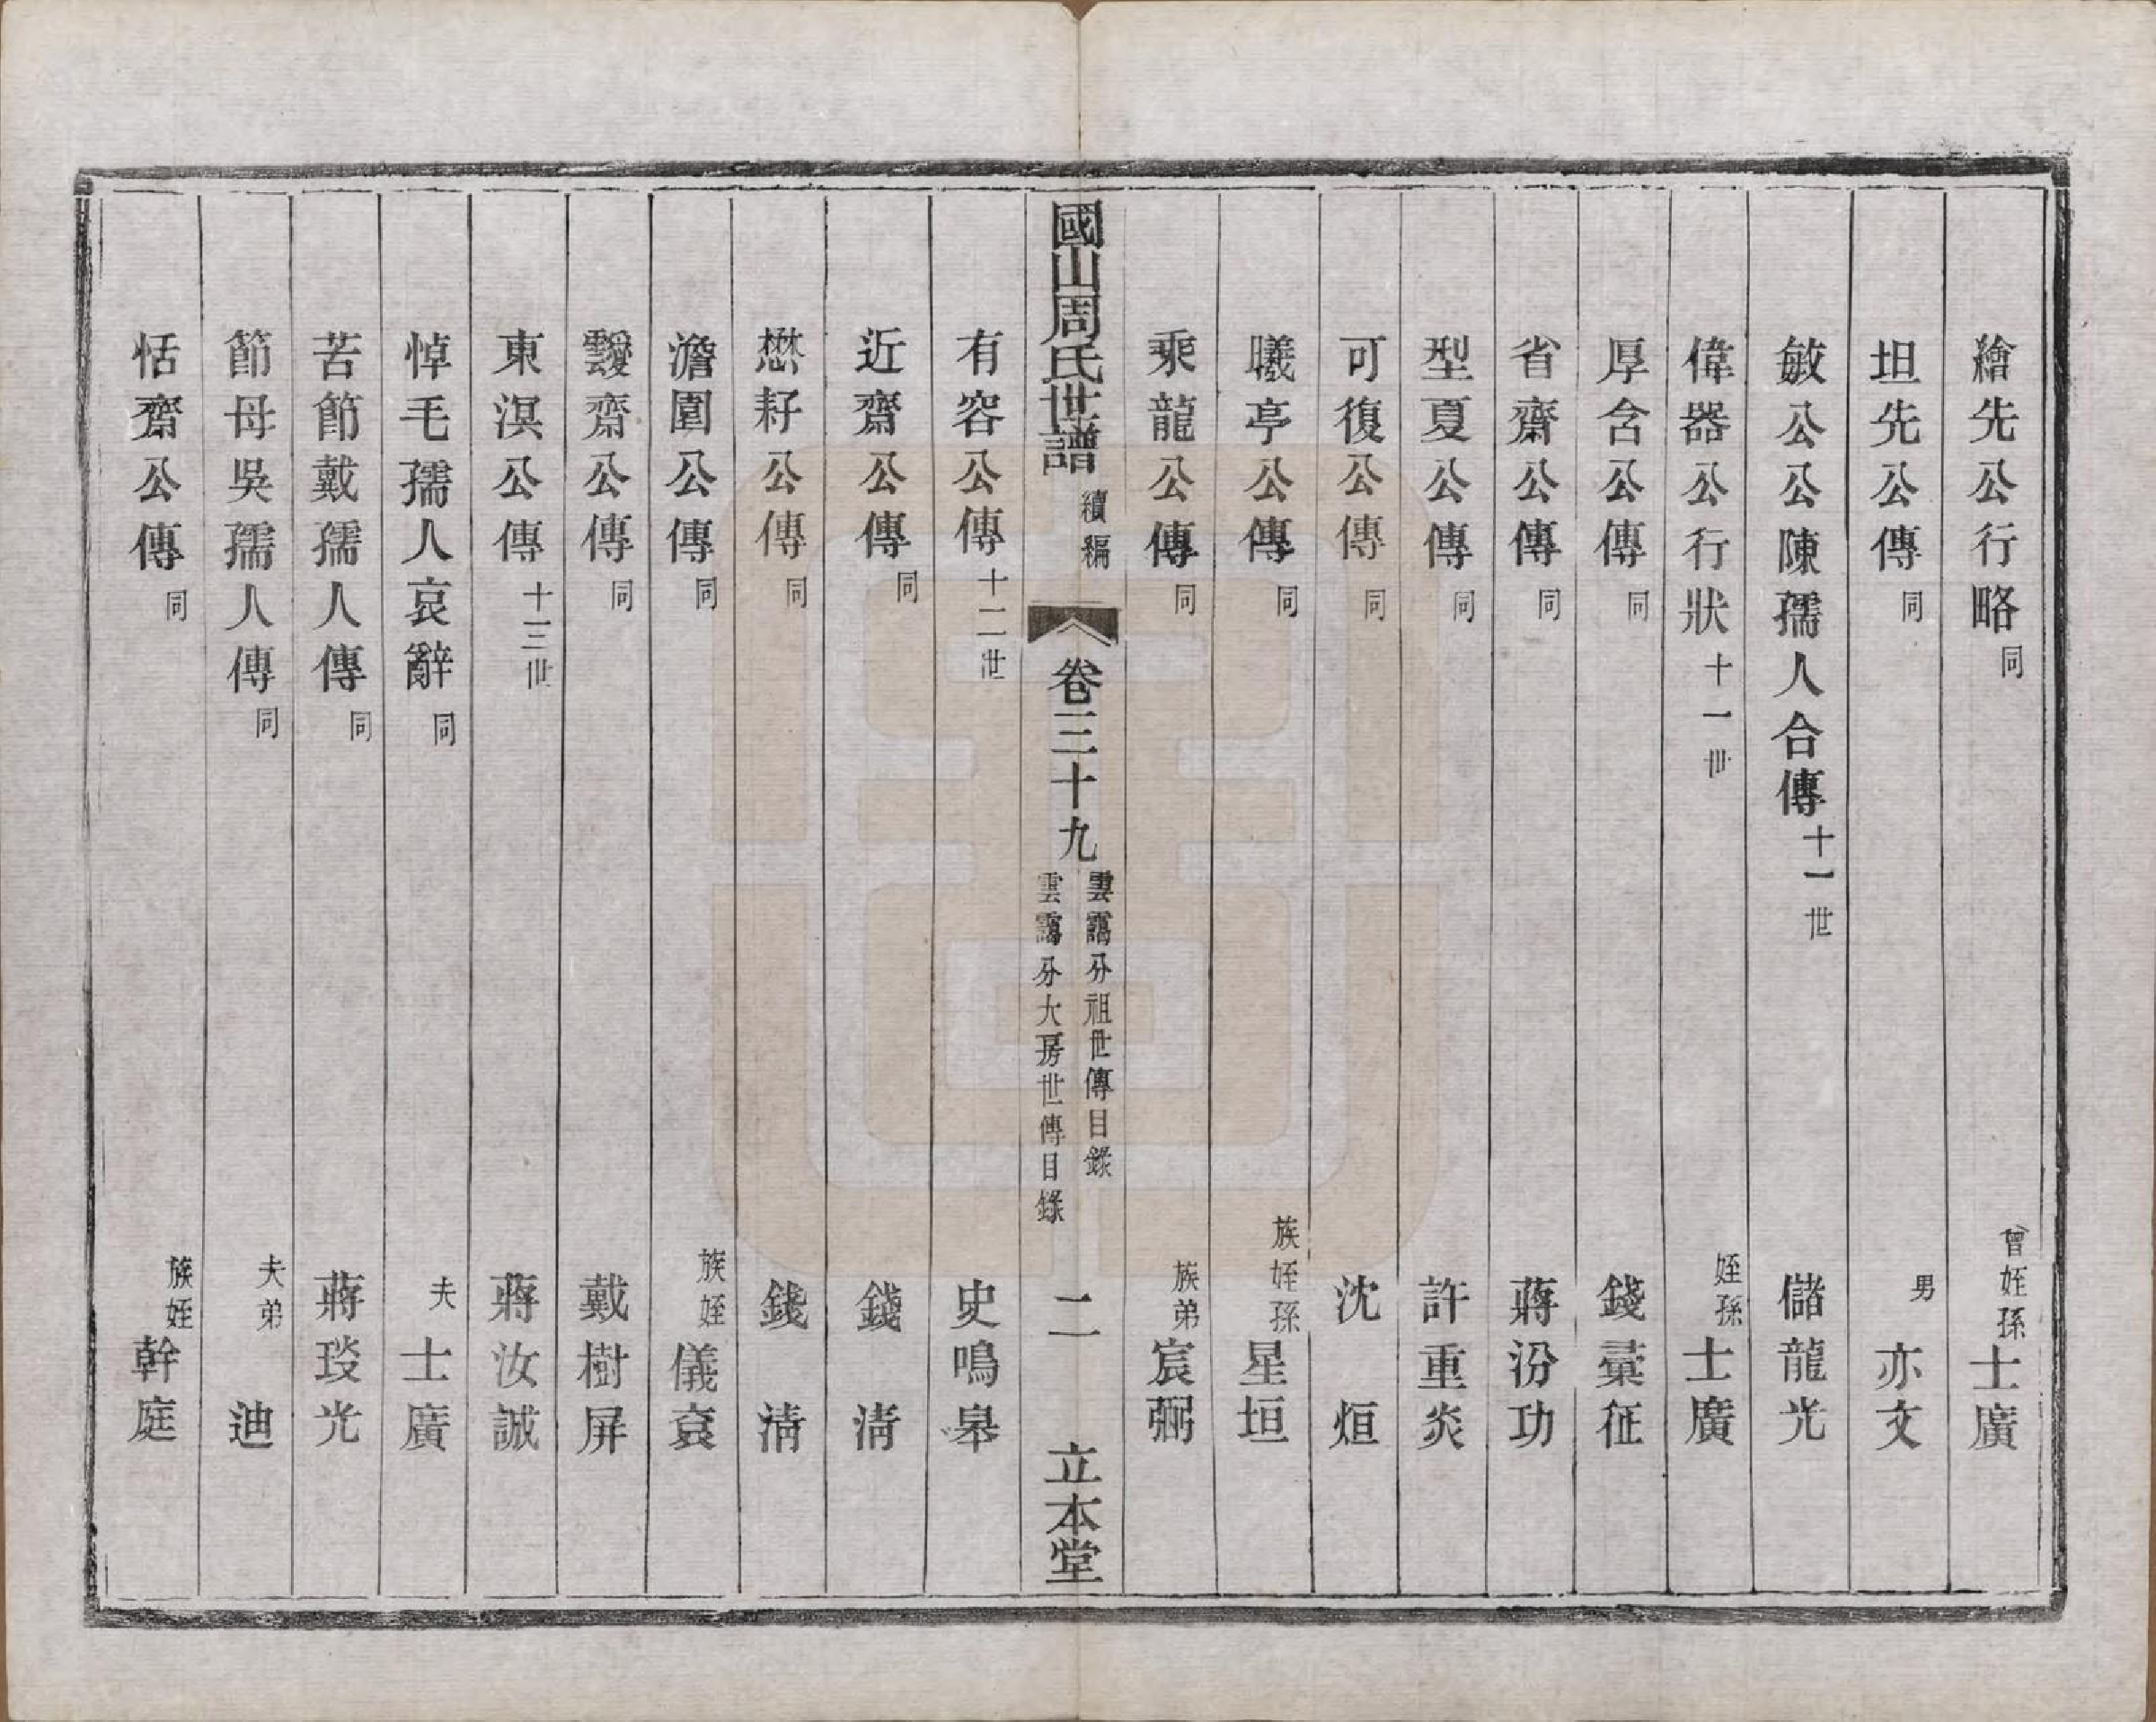 繪先公行略同 曾姪孫士廣
坦先公傳同 男亦文
敏公公陳孺人合傳十一世 儲龍光
偉器公行狀十一世 姪孫士廣
厚含公傳同 錢彙征
省齋公傳同 蔣汾功
型夏公傳同 許重炎
可復公傳同 沈烜
曦亭公傳同 族姪孫星垣
乘龍公傳同 族弟宸弼
國山周氏世譜 續編 卷三十九 雲靄分祖世傳目錄 雲靄分大房世傳目錄 二 立本堂
有容公傳十二世 史鳴皋
近齋公傳同 錢清
懋耔公傳同 錢清
澹圍公傳同 族姪儀袞
靉齋公傳同 戴樹屏
東溟公傳十三世 蔣汝誠
悼毛孺人哀辭同 夫士廣
苦節戴孺人傳同 蔣琰光
節母吳孺人傳同 夫弟迪
恬齋公傳同 族姪幹庭